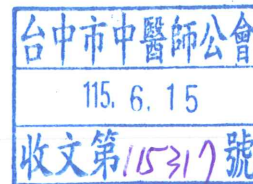 台中市中醫師公會
115. 6. 15
收文第115317號